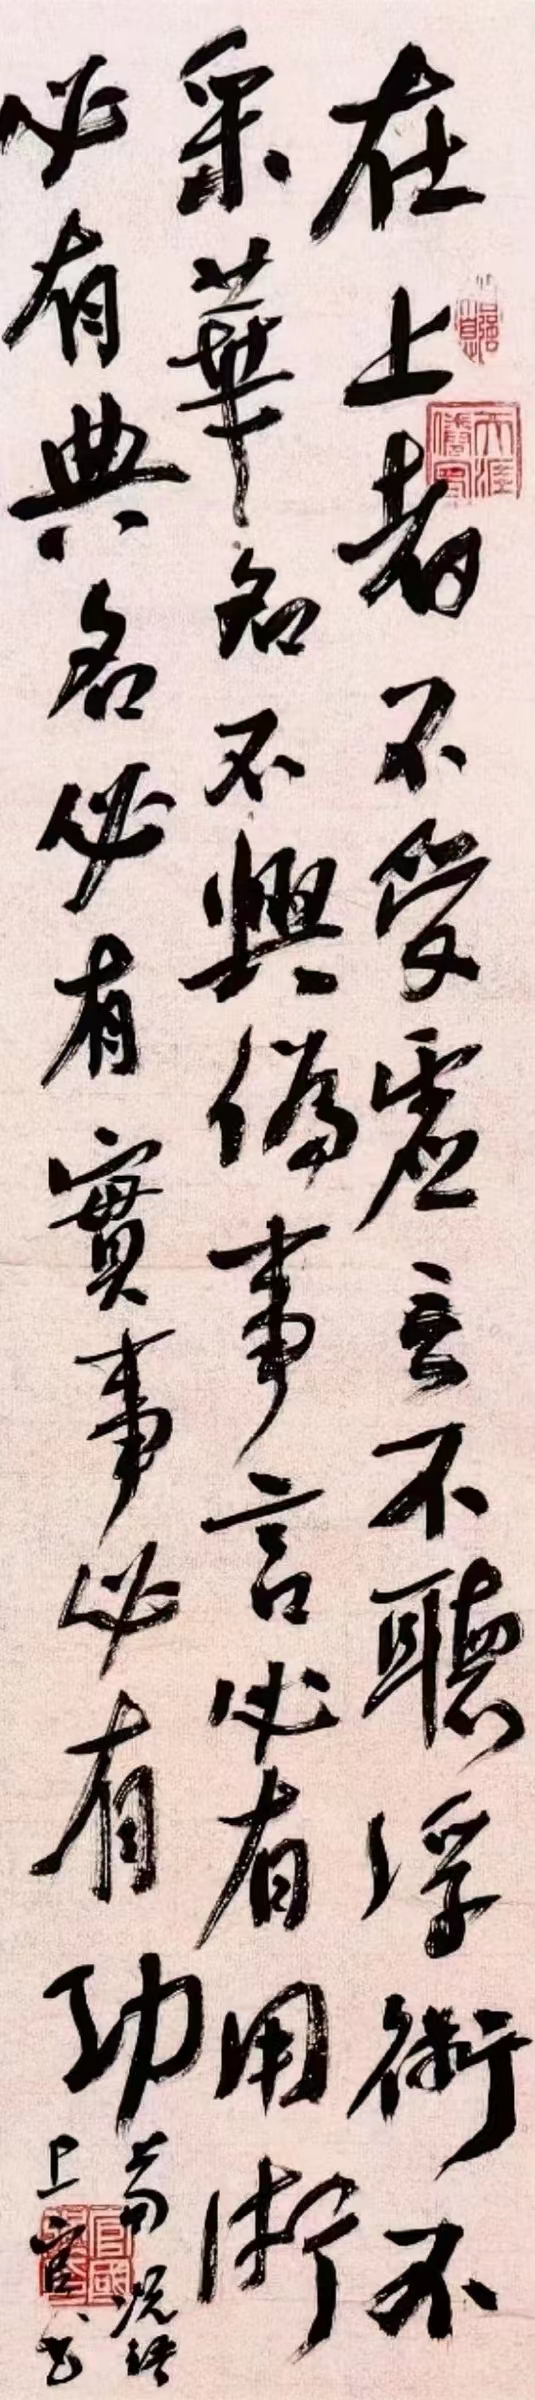 在上者不受虛言不聽浮術不
采華名不興偽事言必有用術
必有典名必有實事必有功
荀悅語
上官